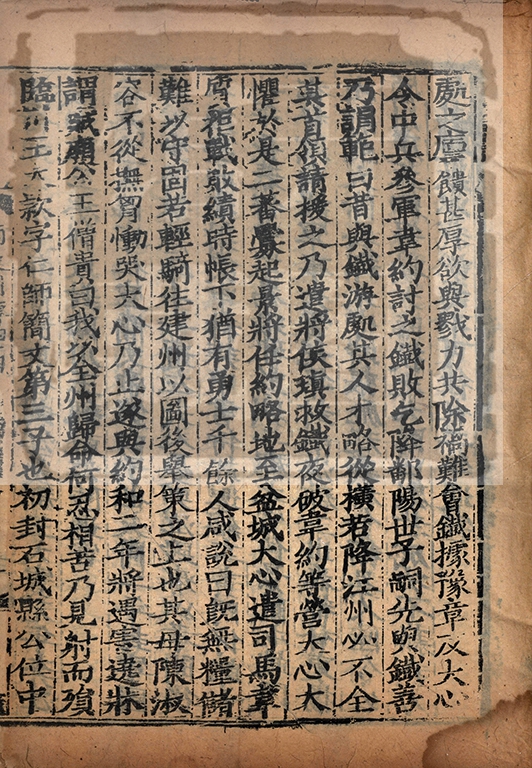 處之廩饋甚厚欲與戮力共除禍難會鐵據豫章反大心
令中兵參軍韋約討之鐵敗乞降鄱陽世子嗣先與鐵善
乃謂範曰昔與鐵游處其人才略從橫若降江州必不全
其首領請援之乃遣將侯瑱救鐵夜破韋約等營大心大
懼於是二蕃釁起景將任約略地至盆城大心遣司馬韋
質拒戰敗績時帳下猶有勇士千餘人咸說曰旣無糧儲
難以守固若輕騎往建州以圖後舉策之上也其母陳淑
容不從撫胷慟哭大心乃止遂與約和二年將遇害遶牀
謂賊廂公王僧貴曰我以全州歸命何忍相苦乃見射而殞
臨川王大款字仁師簡文第三子也初封石城縣公位中